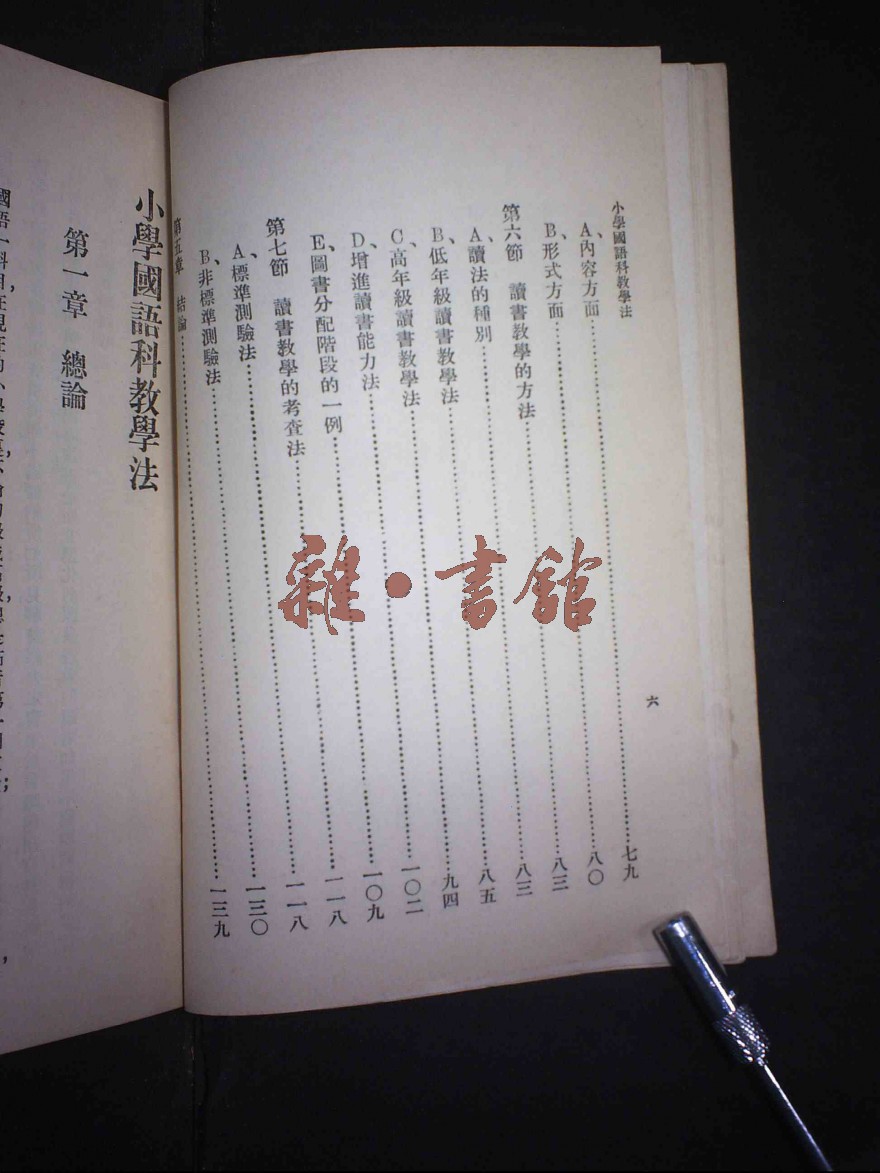 小學國語科教學法
六
A、內容方面……七九
B、形式方面……八〇
第六節 讀書教學的方法……八三
A、讀法的種別……八三
B、低年級讀書教學法……八五
C、高年級讀書教學法……九四
D、增進讀書能力法……一〇二
E、圖書分配階段的一例……一〇九
第七節 讀書教學的考查法……一一八
A、標準測驗法……一一八
B、非標準測驗法……一三〇
第五章 結論……一三九
小學國語科教學法
第一章 總論
國語一科
雜·書館